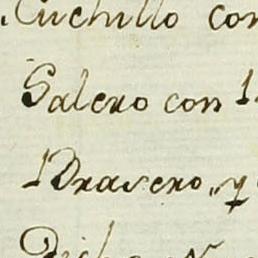 Cuchillo con
Salero con 1
1 Brasero, y